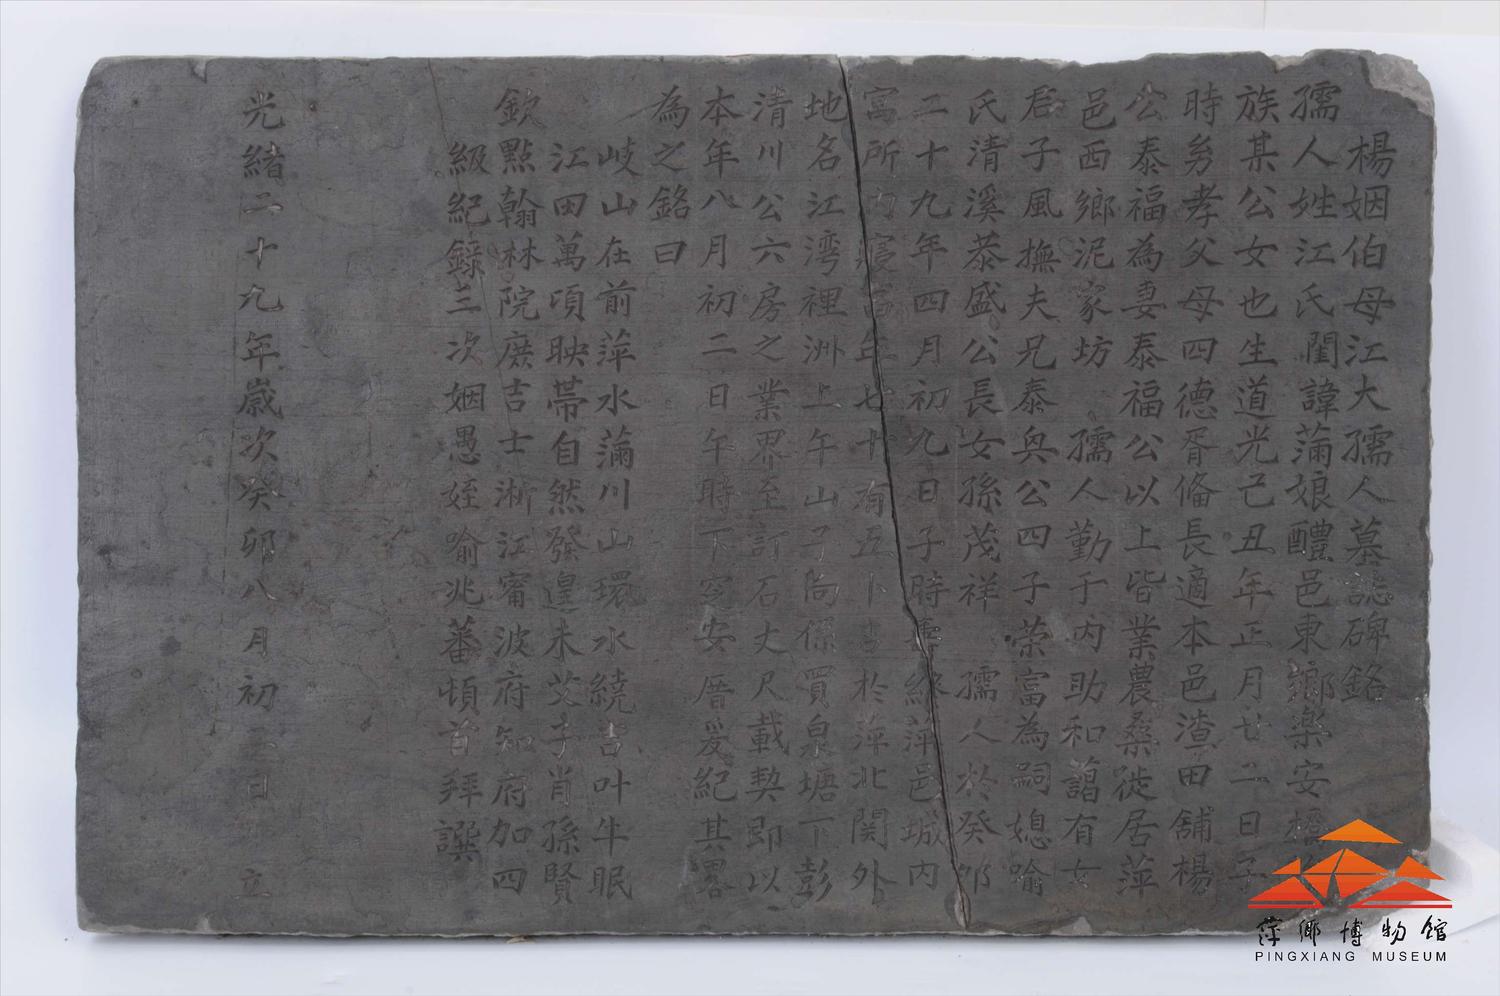 楊姻伯母江大孺人墓誌碑銘
孺人姓江氏閨諱蒲娘醴邑東鄉樂安橋
族某公女也生道光己丑年正月廿二日子
時幼孝父母四德胥脩長適本邑渣田舖楊
公泰福為妻泰福公以上皆業農桑徙居萍
邑西鄉泥家坊 孺人勤于內助和藹有女
君子風撫夫兄泰與公四子荣富為嗣媳喻
氏清溪恭盛公長女孫茂祥 孺人於癸卯
二十九年四月初九日子時 終萍邑城內
寓所內寢 年七十有五卜 於萍北關外
地名江湾裡洲上午山子向係買泉塘下彭
清川公六房之業界至訂石丈尺載契即以
本年八月初二日午時下窆安厝爰紀其畧
為之銘曰
岐山在前萍水蒲川山環水繞吉叶牛眠
江田萬頃映帶自然發遑未艾子肖孫賢
欽點翰林院庶吉士淅江甯波府知府加四
級紀錄三次姻愚姪喻兆蕃頓首拜譔
光緒二十九年歲次癸卯八月初 日 立
萍鄉博物館
PINGXIANG MUSEUM